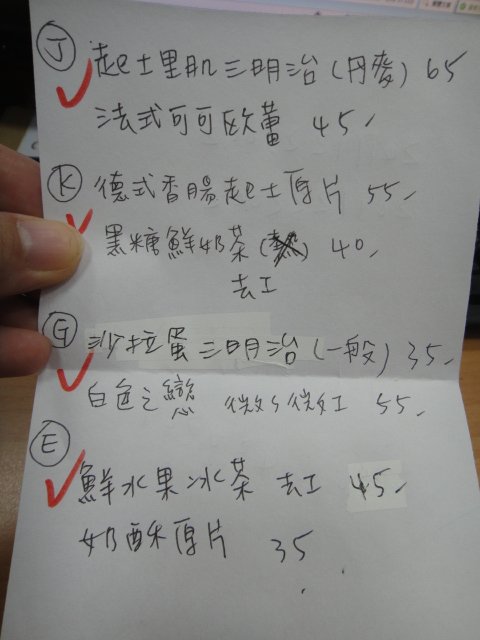 J 起士里肌三明治(丹麥) 65
法式可可歐蕾 45
K 德式香腸起士厚片 55
黑糖鮮奶茶(熱) 40
去工
G 沙拉蛋三明治(一般) 35
白色之戀 微ㄅ微工 55
E
鮮水果冰茶 去工 45
奶酥厚片 35